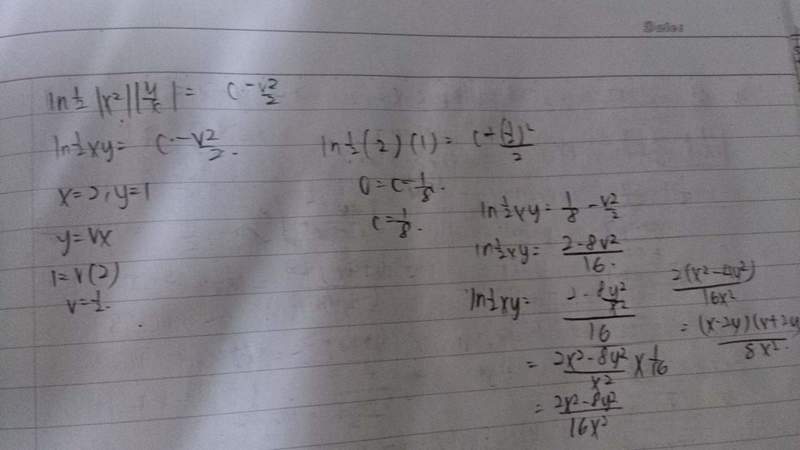 Date:
ln½|x²||y/x| = C - v²/2
ln½xy = C - v²/2.
x=2, y=1
y=vx
1=v(2)
v=½.
ln½(2)(1) = C - (½)²/2
0 = C - 1/8.
C = 1/8.
ln½xy = 1/8 - v²/2
ln½xy = 2-8v²/16.
ln½xy = 2-8y²/x²/16
= 2x²-8y²/x² × 1/16
= 2x²-8y²/16x²
2(x²-4y²)/16x²
= (x-2y)(x+2y/8x².